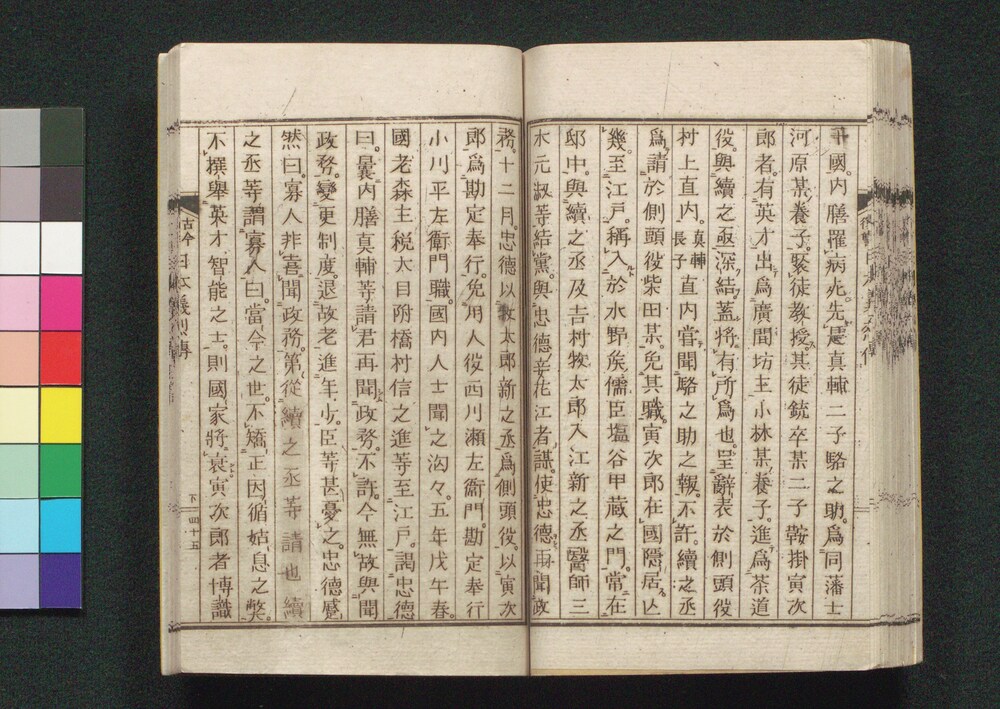 國。内膳罹病死。先是眞輔二子駱之助。爲同藩士
河原某養子。聚徒教授。其徒銃卒某二子鞍掛寅次
郎者。有英才。出爲廣間坊主小林某養子。進爲茶道
役。與續之亟深結。蓋將有所爲也。呈辭表於側頭役
村上直内。眞輔長子直内嘗聞駱之助之報。不許。續之丞
爲請於側頭役柴田某。免其職。寅次郎在國隱居。亾
幾。至江戸。稱入於水野矦儒臣塩谷甲藏之門。常在
邸中。與續之丞及吉村牧太郎入江新之丞醫師三
木元叔等結黨。與忠德妾花江者謀。使忠德再聞政
務。十二月。忠德以牧太郎新之丞。爲側頭役。以寅次
郎爲勘定奉行。免用人役西川瀬左衞門。勘定奉行
小川平左衞門職。國内人士聞之洶々。五年戊午春。
國老森主税大目附橋村信之進等至江戸。謁忠德
曰。曩内膳眞輔等請君再聞政務。不許。今無故與聞
政務。變更制度。退故老進年少。臣等甚憂之。忠德蹙
然曰。寡人非喜聞政務。第從續之丞等請也。續
之丞等謂寡人曰。當今之世。不矯正因循姑息之弊。
不撰舉英才智能之士。則國家將衰。寅次郎者博識
古今日本義烈傳
下 四十五